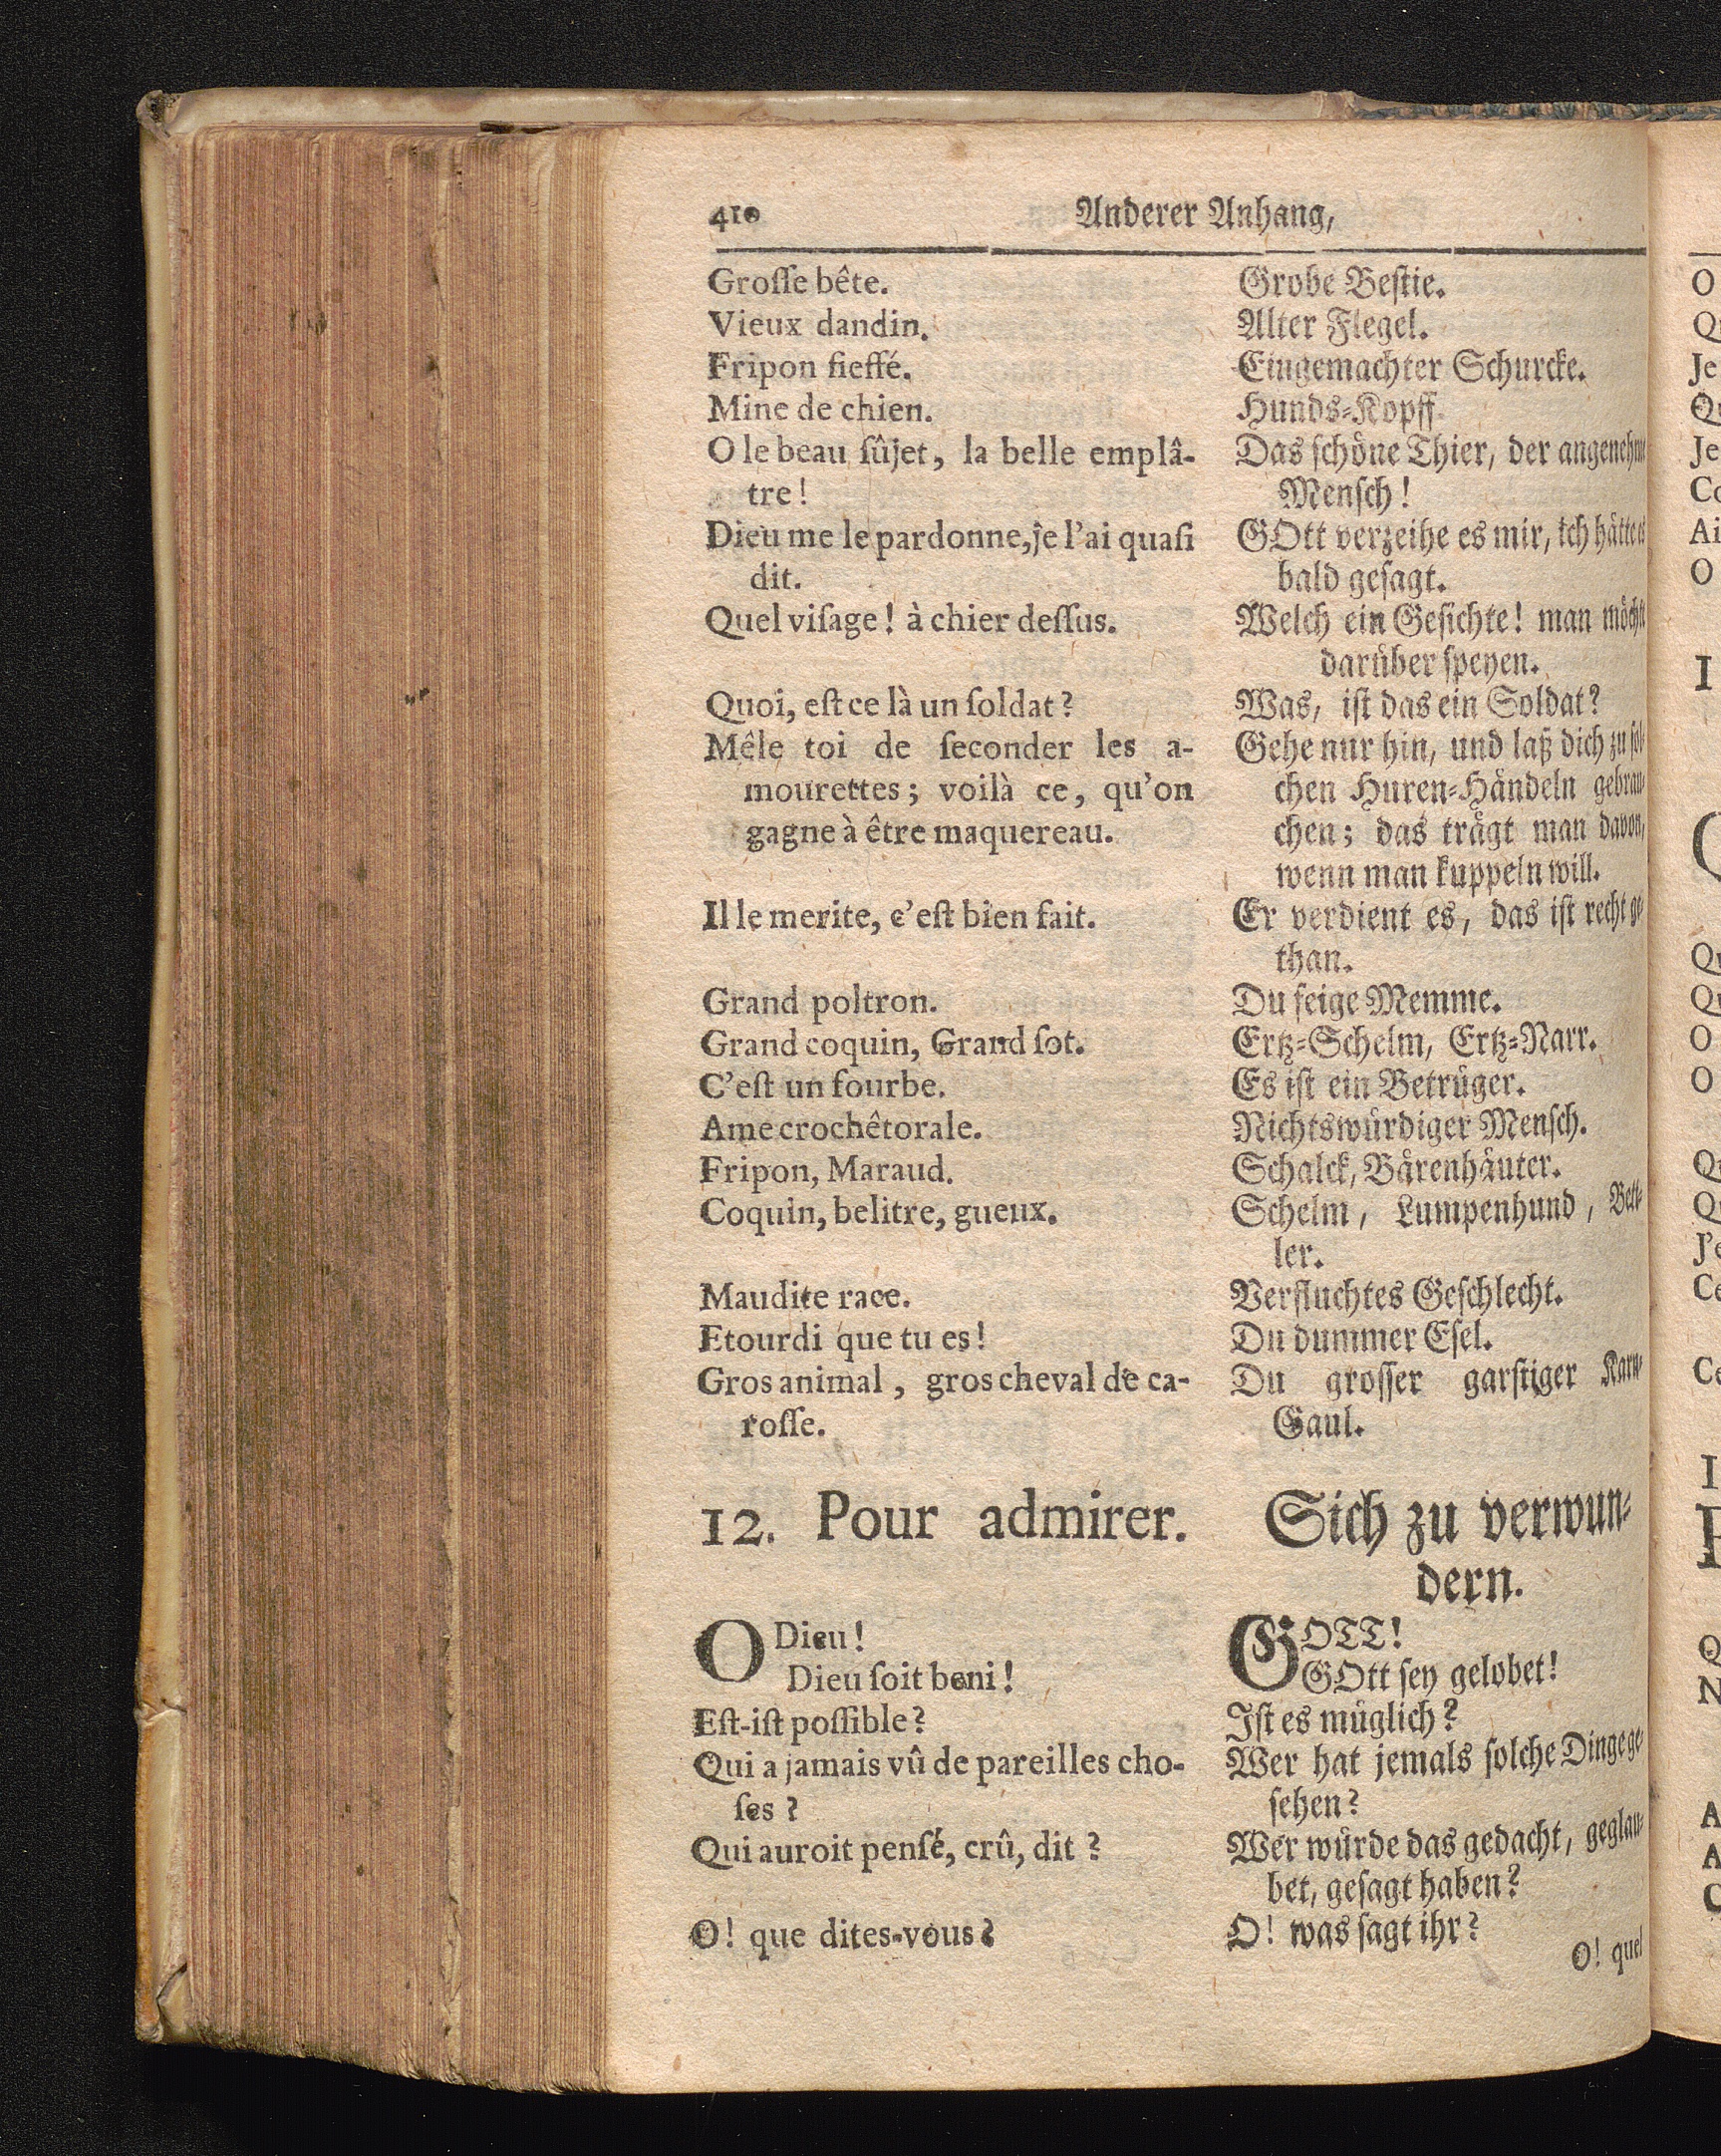 410 Anderer Anhang,
Groſſe bête.
Vieux dandin.
Fripon fieffé.
Mine de chien.
O le beau ſûjet, la belle emplâ-
tre!
Dieu me le pardonne, je l'ai quaſi
dit.
Quel viſage! à chier deſſus.
Quoi, eſt ce là un ſoldat?
Mêle toi de ſeconder les a-
mourettes; voilà ce, qu'on
gagne à être maquereau.
Il le merite, c'eſt bien fait.
Grand poltron.
Grand coquin, Grand ſot.
C'eſt un fourbe.
Ame crochêtorale.
Fripon, Maraud.
Coquin, belitre, gueux.
Maudite race.
Etourdi que tu es!
Gros animal, gros cheval de ca-
roſſe.
12. Pour admirer.
O Dieu!
Dieu ſoit beni!
Eſt-iſt poſſible?
Qui a jamais vû de pareilles cho-
ſes?
Qui auroit penſé, crû, dit?
O! que dites-vous?
Grobe Beſtie.
Alter Flegel.
Eingemachter Schurcke.
Hunds-Kopff.
Das ſchöne Thier, der angenehme
Menſch!
GOtt verzeihe es mir, ich hätte es
bald geſagt.
Welch ein Geſichte! man möchte
darüber ſpeyen.
Was, iſt das ein Soldat?
Gehe nur hin, und laß dich zu ſol-
chen Huren-Händeln gebrau-
chen; das trägt man davon,
wenn man kuppeln will.
Er verdient es, das iſt recht ge-
than.
Du feige Memme.
Ertz-Schelm, Ertz-Narr.
Es iſt ein Betrüger.
Nichtswürdiger Menſch.
Schalck, Bärenhäuter.
Schelm, Lumpenhund, Bett-
ler.
Verfluchtes Geſchlecht.
Du dummer Eſel.
Du groſſer garſtiger Karn-
Gaul.
Sich zu verwun-
dern.
GOTT!
GOtt ſey gelobet!
Iſt es müglich?
Wer hat jemals ſolche Dinge ge-
ſehen?
Wer würde das gedacht, geglau-
bet, geſagt haben?
O! was ſagt ihr?
O! quel